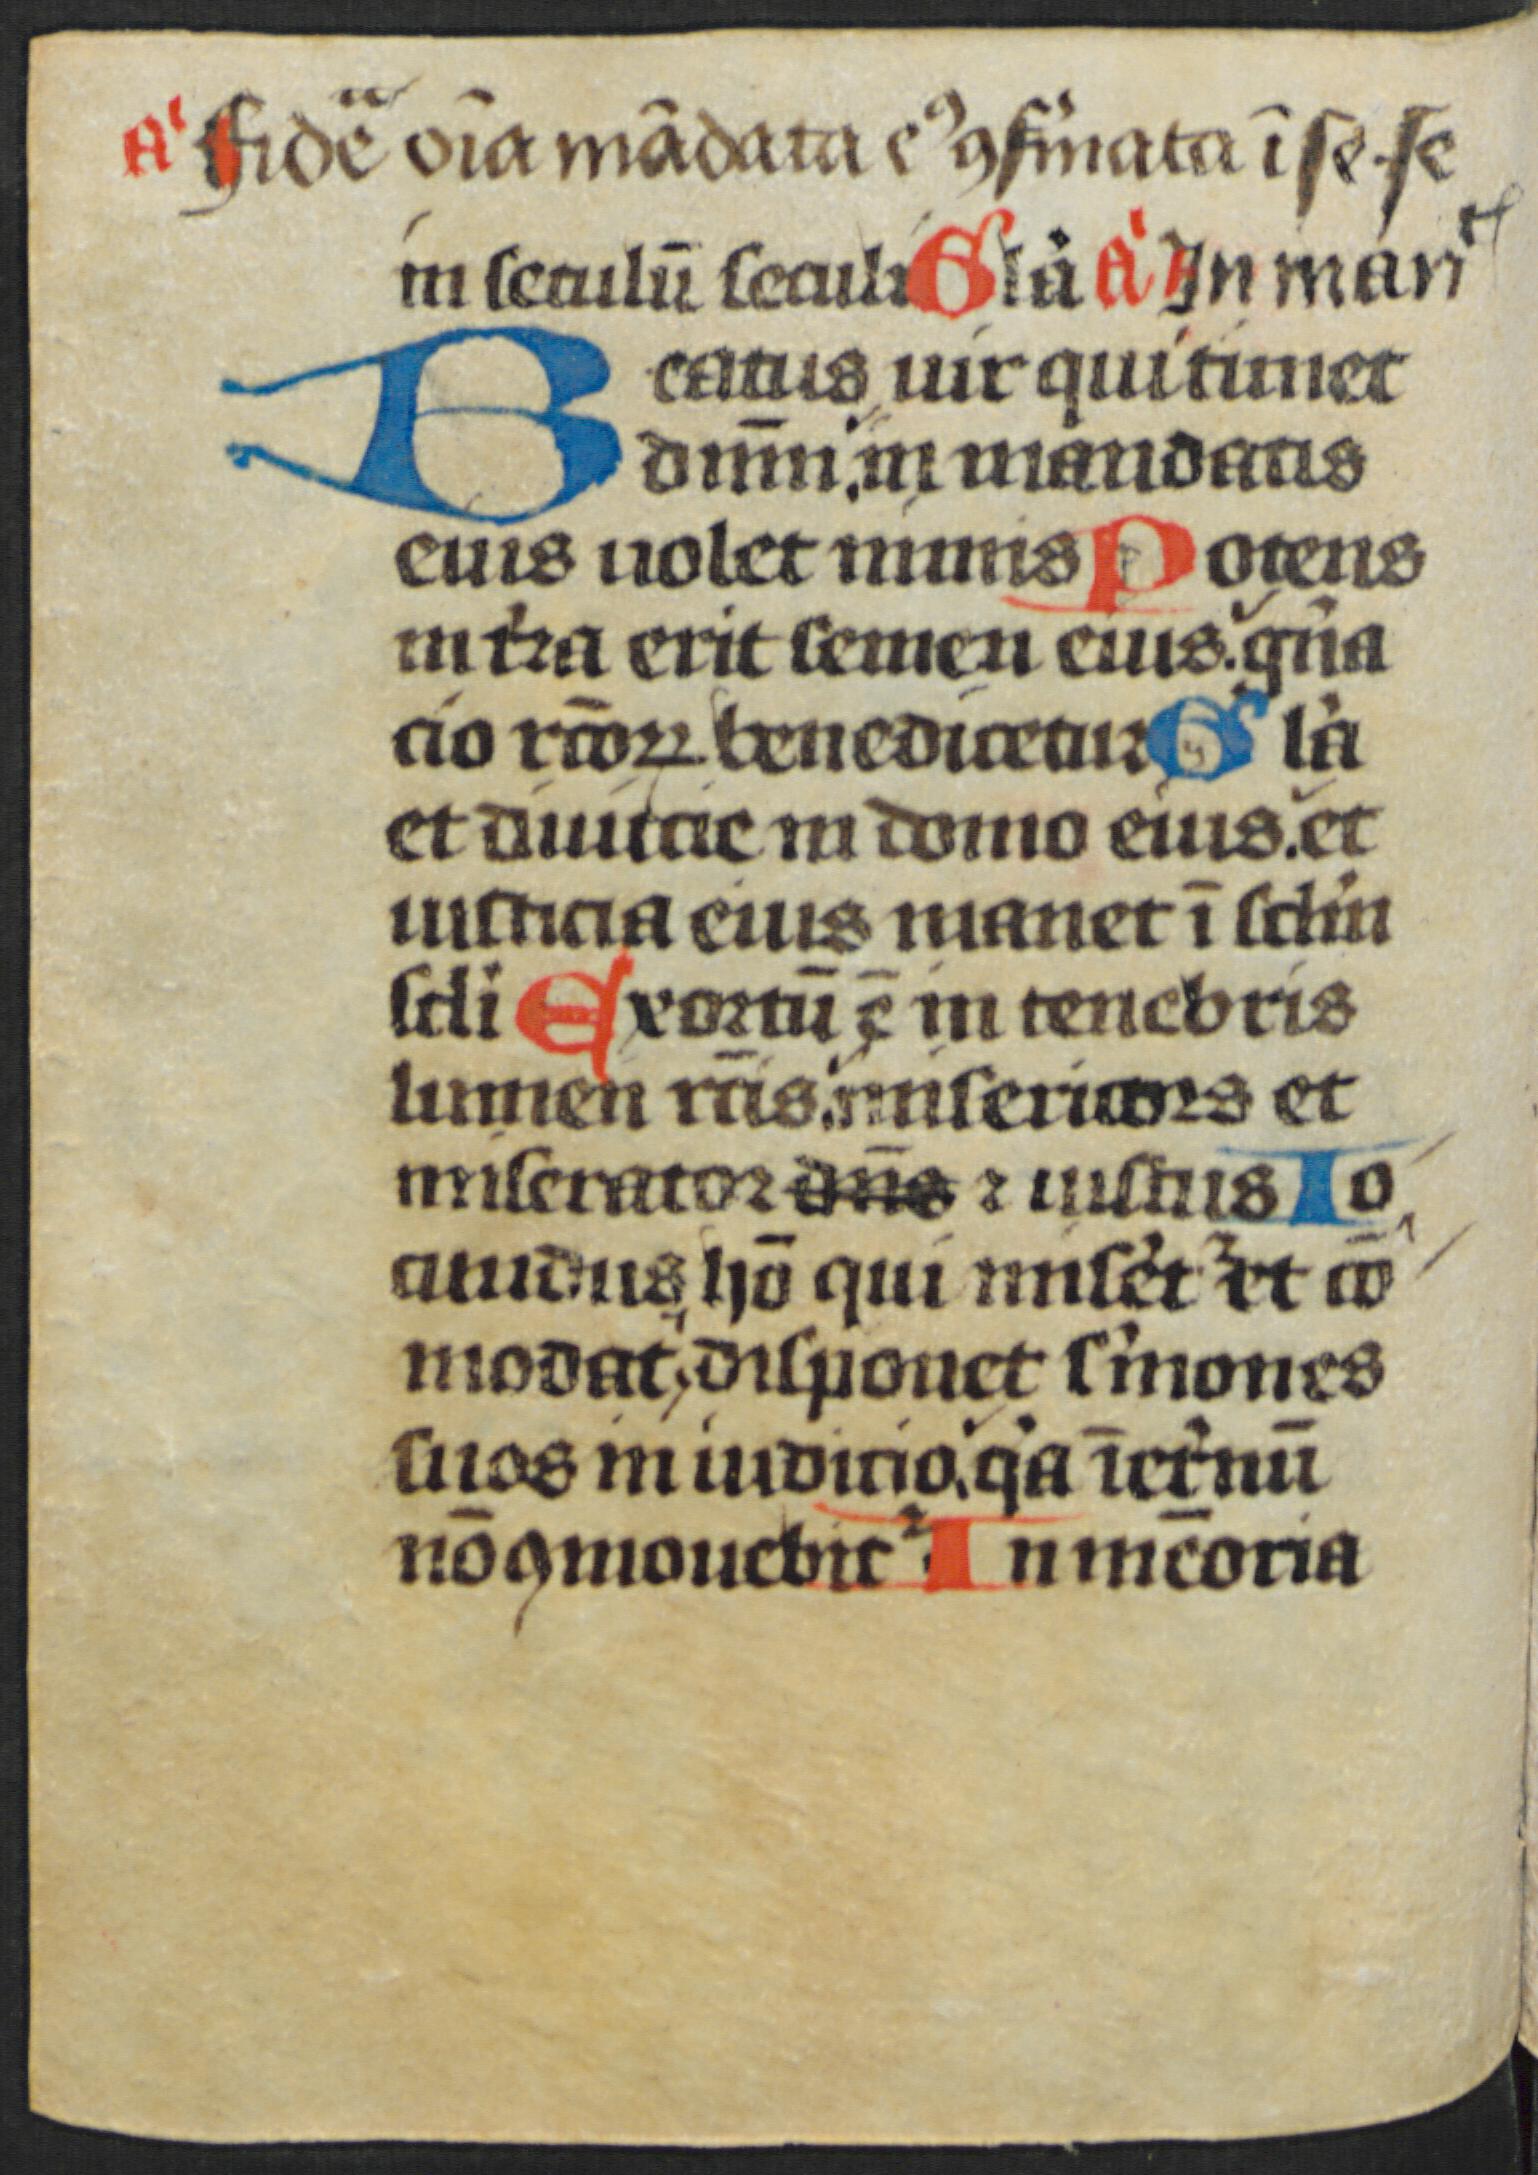 A' Fidēa oīa mādata eꝰ ꝯfirmata ī sc̄. sc̄
in seculū seculi Gl'a A' In man
Beatus uir qui timet
dnm̄. in mandatis
eius uolet nimis Potens
in tr̄a erit semen eius. gn̄a
cio rc̄oꝝ benedicetur Gl'a
et diuicie in domo eius. et
iusticia eius manet ī sclm̄
scli Exortū ē in tenebris
lumen rc̄is. misericors et
miserator dn̄s ⁊ iustus Io
cundus hō qui miser̉et᷑ et cō
modat, disponet sm̉ones
suos in iudicio. qỉa īet̉nū
nō ꝯmouebit᷑ In mēoria